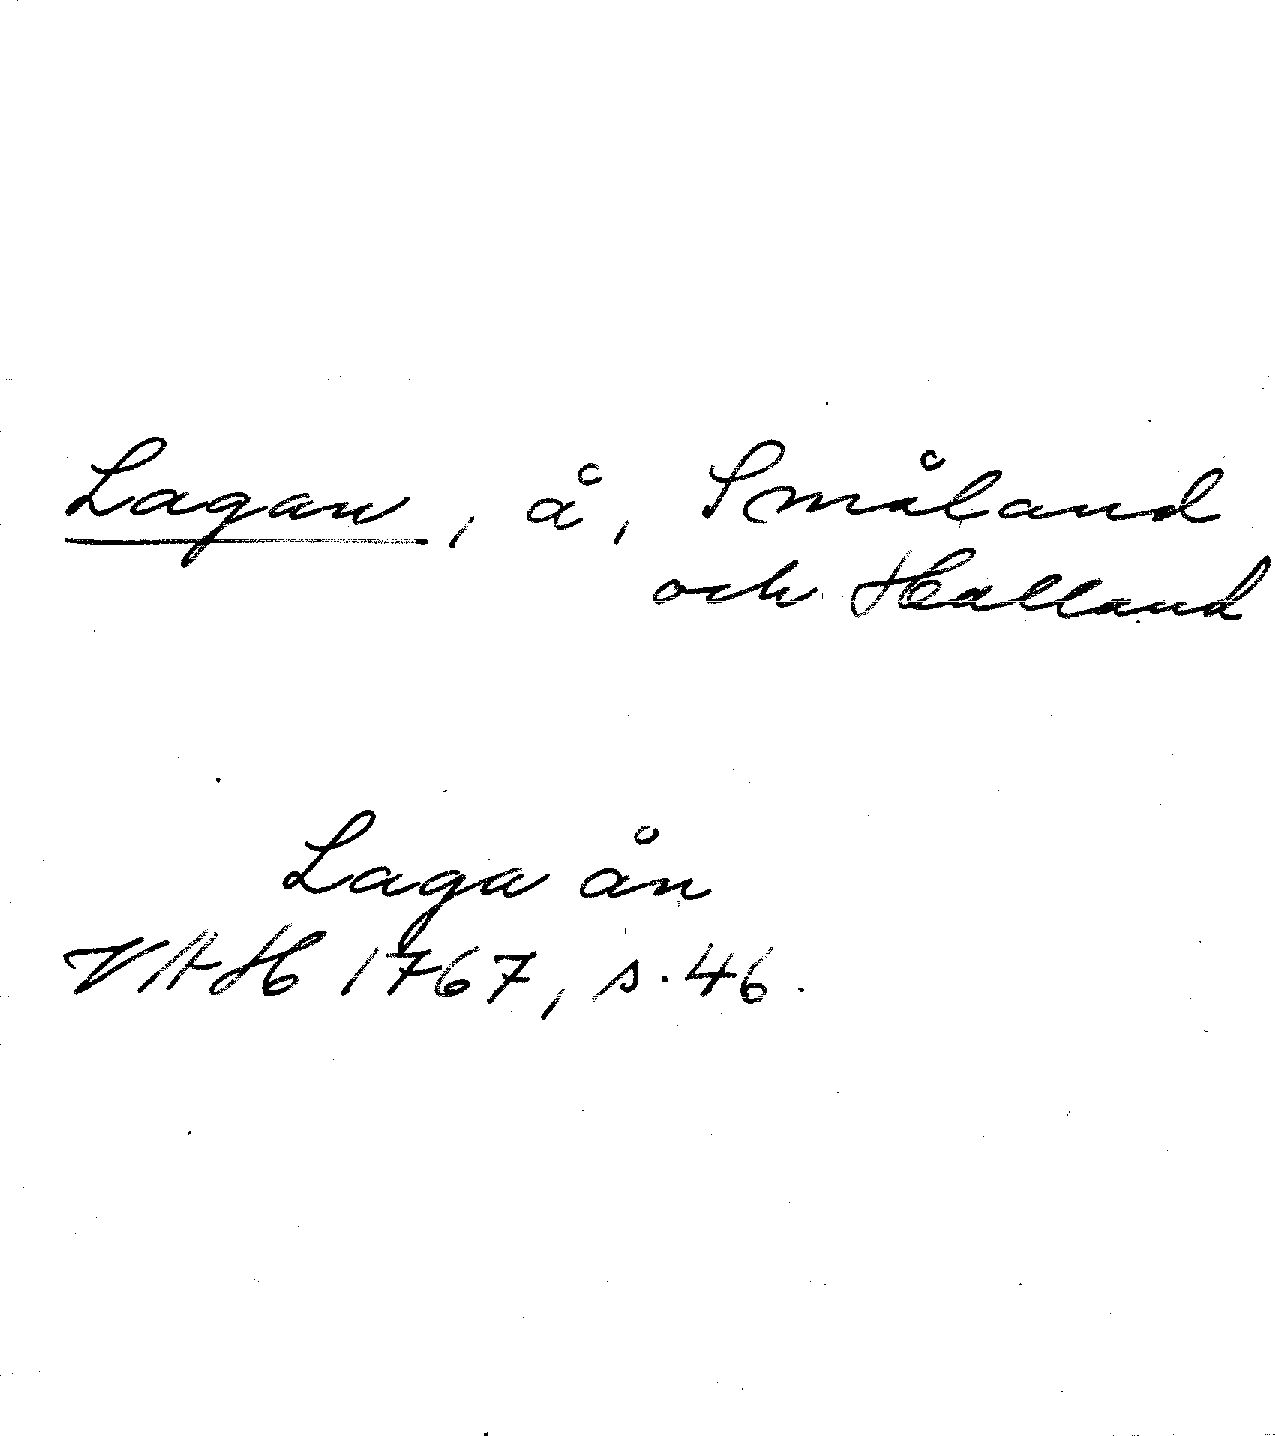 Lagan, å, Småland
och Halland
Laga ån
VAH 1767, s. 46.